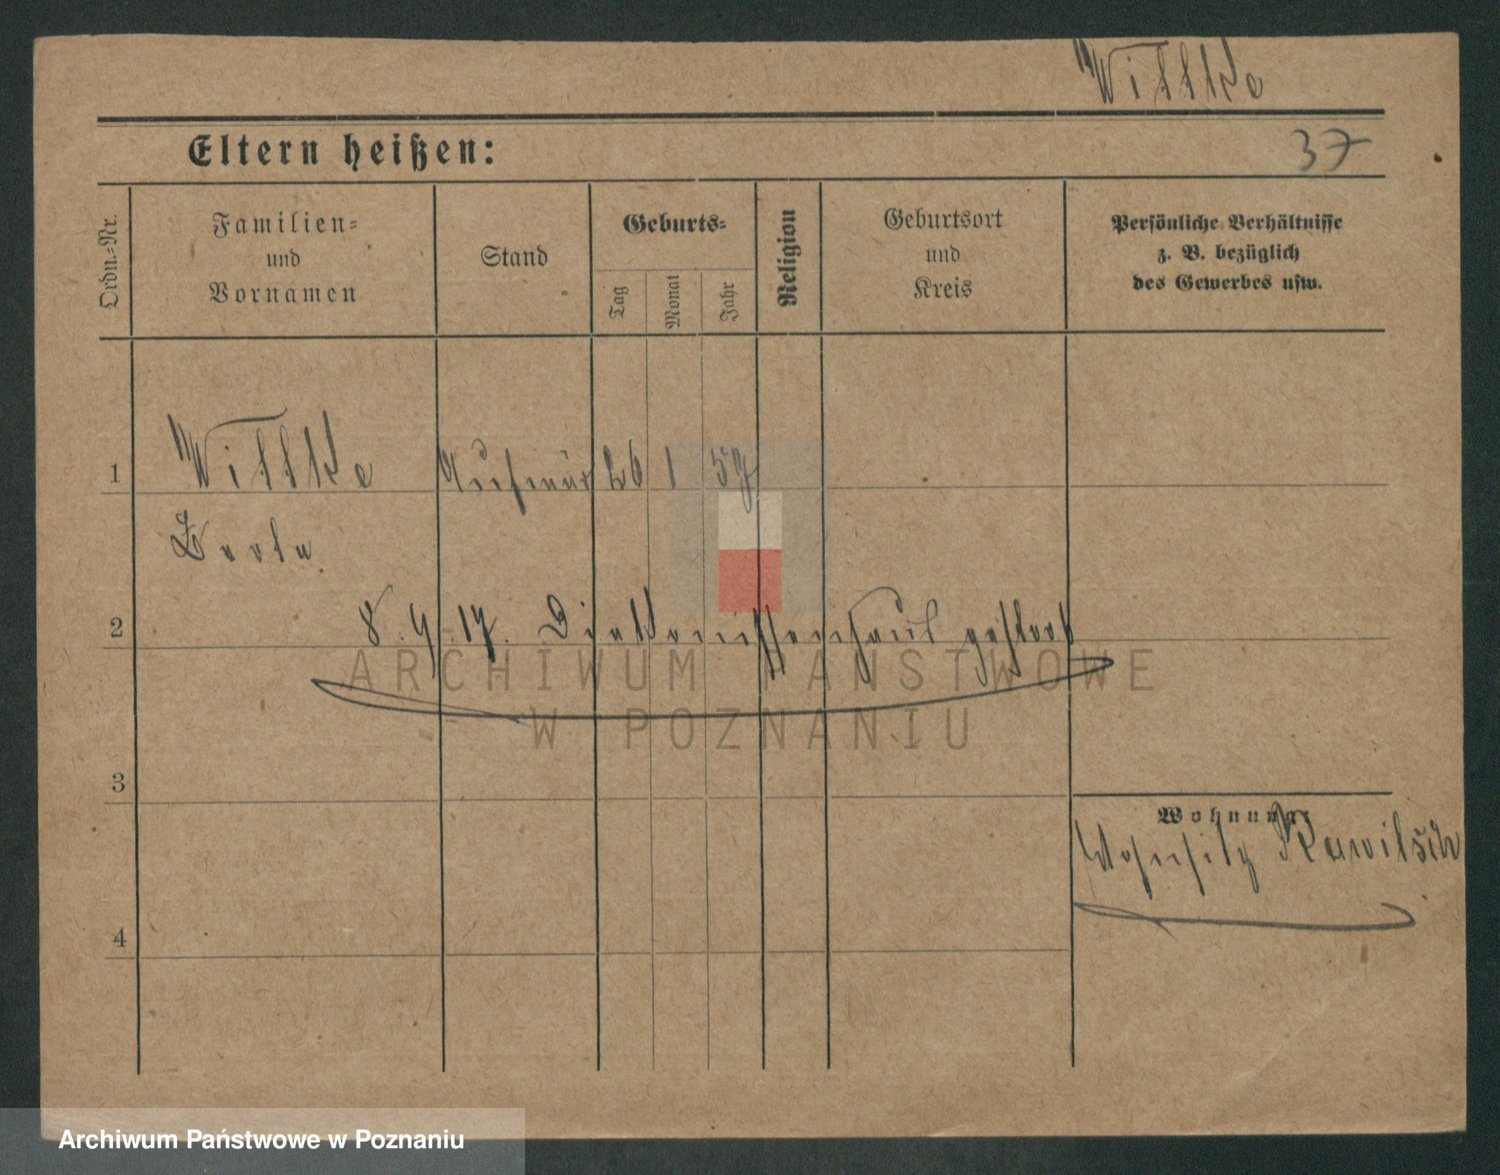 Wittke
Eltern heißen:
37
Ordn.-Nr.
Familien-
und
Vornamen
Stand
Geburts-
Tag
Monat
Jahr
Religion
Geburtsort
und
Kreis
Persönliche Verhältnisse
z. B. bezüglich
des Gewerbes usw.
1
Wittke
26 1 57
2
8.9.17. Diakonissenhaus gestorb
ARCHIWUM PAŃSTWOWE
W POZNANIU
3
Wohnung
Wohnsitz Rawitsch
4
Archiwum Państwowe w Poznaniu